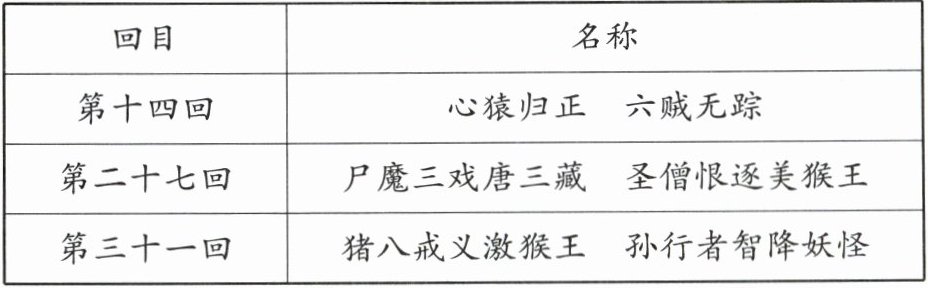 回目 名称
第十四回 心猿归正 六贼无踪
第二十七回 尸魔三戏唐三藏 圣僧恨逐美猴王
第三十一回 猪八戒义激猴王 孙行者智降妖怪